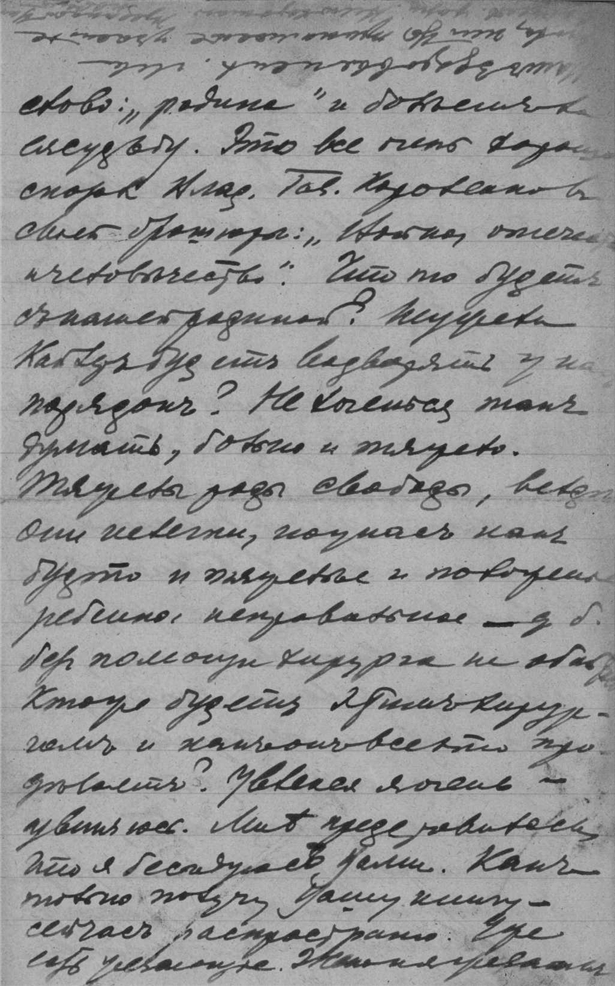 слово: „родина“ и
судьбу. Это все очень
Влад. Гал. Короленко въ
своей брошюры: „Война, отече
и человѣчество“. Что то будетъ
съ нашей родиной? Неужели
будетъ водворять у на
порядокъ? Не хочется такъ
думать, больно и тяжело.
Тяжелы роды свободы, вездѣ
они нелегки, но у насъ какъ
будто и тяжелые и положение
ребенка неправильное — д. б.
без помощи хирурга не
Кто же будетъ этимъ хирур-
гомъ и какъ онъ все это про
дѣлаетъ? Увлекся я очень —
извиняюсь. Мнѣ представилось,
что я бесѣдую съ Вами. Какъ
только получу Вашу книгу —
сейчасъ распространю. Уже
есть желающие.